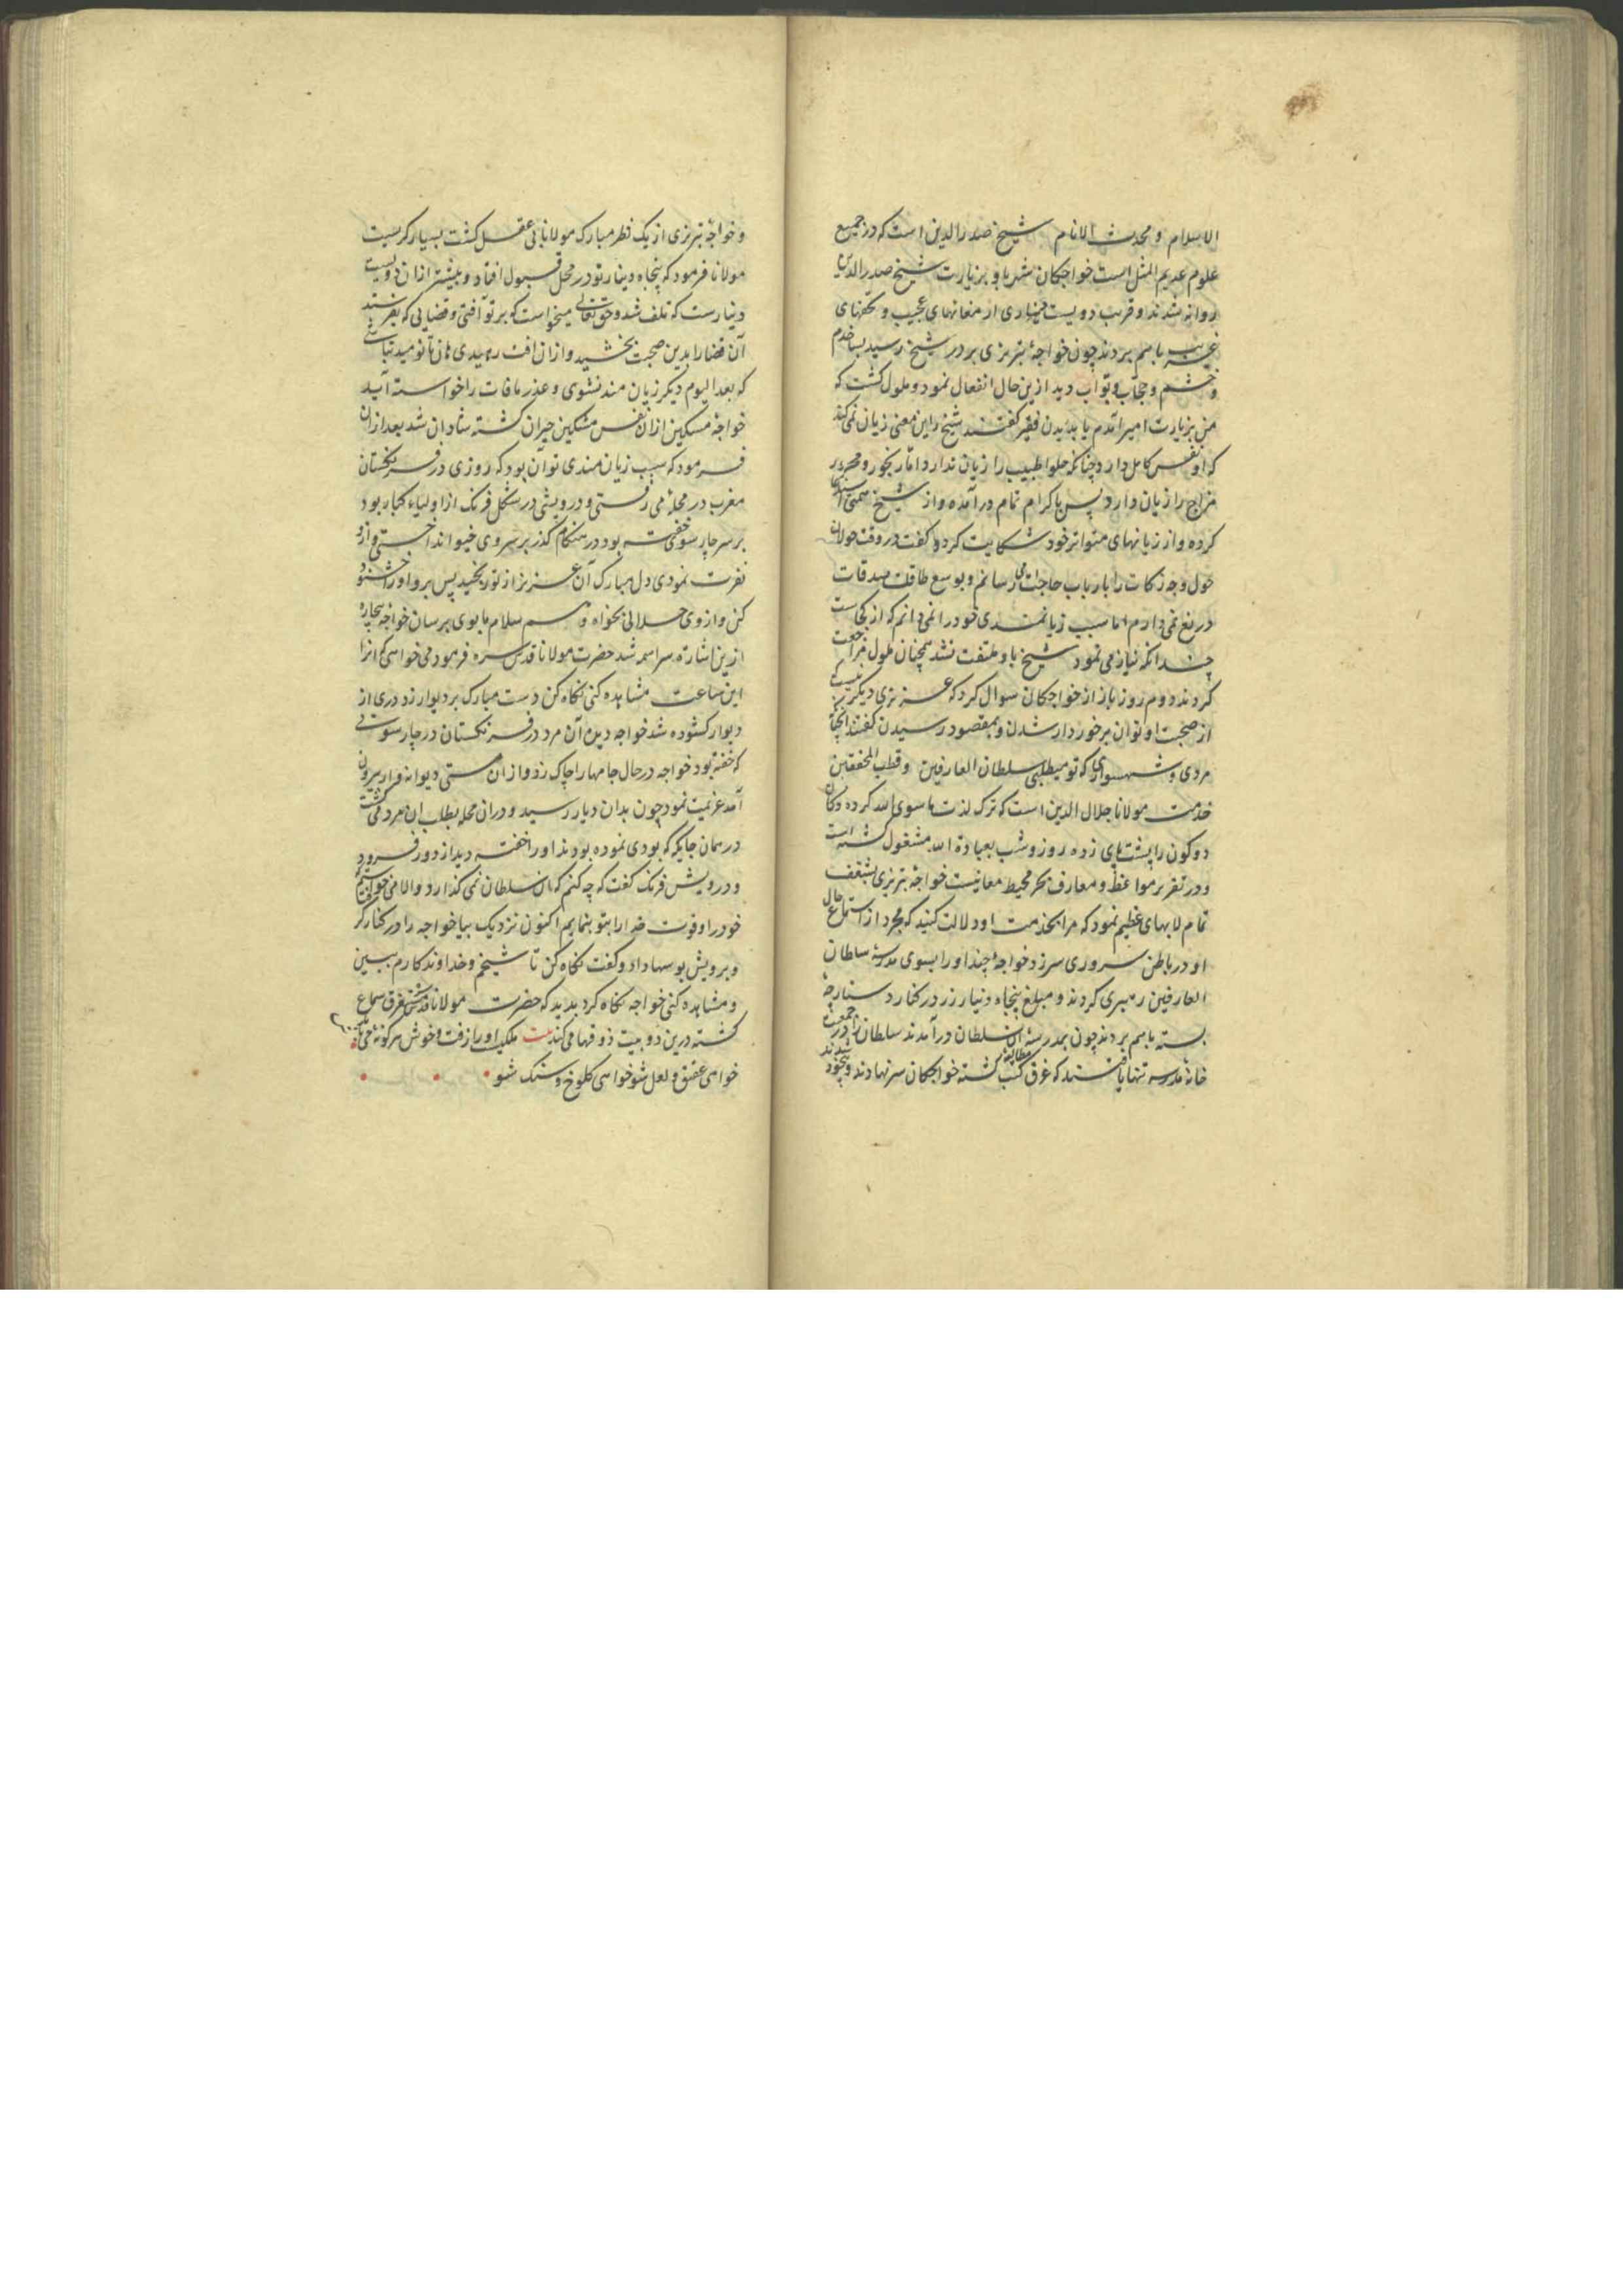 الاسلام و محدث الانام شیخ صدرالدین است که در جمیع
علوم عدیم المثل است خواجکان شهر با او بزیارت شیخ صدرالدین
روانه شدند و قریب دویست دیناری ارمغانهای عجیب و تحفهای
غریب باهم بردند چون خواجهٔ تبریزی بر در شیخ رسید بسا خدم
و حشم و حجاب و بواب دید ازین حال انفعال نمود و ملول کشت که
من بزیارت امیر آمدم یا بدیدن فقیر کفتند شیخ را این معنی زیان نمی‌کند
که او نفس کامل دارد چنانکه حلوا طبیب را زیان ندارد اما رنجور و محرور
مزاج را زیان دارد پس باکرام تمام درآمده و از شیخ همتی استدعا
کرده و از زیانهای متواتر خود شکایت کرد و کفت در وقت حولان
حول وجه زکات را بارباب حاجات می‌رسانم و بوسع طاقت صدقات
دریغ نمی‌دارم اما سبب زیانمندی خود را نمی‌دانم که از کجاست
چندانکه نیاز می‌نمود شیخ باو ملتفت نشد همچنان ملول مراجعت
کردند دوم روز باز از خواجکان سوال کرد که عزیزی دیکر نیست که
از صحبت او توان برخوردار شدن و بمقصود رسیدن کفتند آنچنان
مردی و شهسواری که تو میطلبی سلطان العارفین و قطب المحققین
خدمت مولانا جلال الدین است که ترک لذت ما سوی الله کرده و کان
دو کون را پشت پای زده روز و شب بعبادة الله مشغول کشته است
و در تقریر مواعظ و معارف بحر محیط معانیست خواجهٔ تبریزی بشغف
تمام لابهای عظیم نمود که مرا بخدمت او دلالت کنید که مجرد از استماع حال
او در باطن سروری سر زد خواجهٔ چند او را بسوی مدرسهٔ سلطان
العارفین رهبری کردند و مبلغ پنجاه دینار زر در کنار دستارچه
بسته باهم بردند چون بمدرسهٔ آن سلطان درآمدند سلطان را در جمعیت
خانهٔ مدرسه تنها یافتند که غرق مطالعهٔ کتب کشته خواجکان سر نهادند و بیخود شدند
و خواجهٔ تبریزی از یک نظر مبارک مولانا بی عقل کشت بسیار کریست
مولانا فرمود که پنجاه دینار تو در محل قبول افتاد و بیشتر از آن دویست
دینارست که تلف شد و حق تعالی میخواست که بر تو آفتی و قضایی که بفرستد
آن قضا را بدین صحبت بخشید و از آن آفت رهیدی هان تا نومید نباشی
که بعد الیوم دیکر زیان مند نشوی و عذر مافات را خواسته آید
خواجهٔ مسکین از آن نفس مشکین حیران کشته شادان شد بعد از آن
فرمود که سبب زیان مندی تو آن بود که روزی در فرنکستان
مغرب در محلهٔ می رفتی و درویشی در شکل فرنک از اولیاء کبار بود
بر سر چار سو خفته بود در هنکام کذر بر سر وی خیو انداختی و از و
نفرت نمودی دل مبارک آن عزیز از تو رنجید پس برو او را خشنود
کن و از وی حلالی بخواه و هم سلام ما بوی برسان خواجهٔ بیچاره
ازین اشارت سراسمه شد حضرت مولانا قدس سره فرمود می خواهی که او را
این ساعت مشاهده کنی نکاه کن دست مبارک بر دیوار زد دری از
دیوار کشوده شد خواجه دید آن مرد در فرنکستان در چار سوئی
که خفته بود خواجه در حال جامها را چاک زد و از آن مستی دیوانه وار بیرون
آمد عزیمت نمود چون بدان دیار رسید و در آن محله بطلب آن مرد می کشت
در همان جایکه که بودی نموده بودند او را خفته دید از دور فرود
و درویش فرنک کفت که چه کنم که آن سلطان نمی‌کذارد و الا می خواستم که
خود را و قوت خدا را بتو بنمایم اکنون نزدیک بیا خواجه را در کنار کر
و برویش بوسها داد و کفت نکاه کن تا شیخم و خداوند کارم ببین
و مشاهده کنی خواجه نکاه کرد بدید که حضرت مولانا غرق سماع
کشته درین دو بیت ذوقها می‌کند بیت ملکیت او را زفت و خوش هر کونهٔ می‌بایدش
خواهی عقیق و لعل شو خواهی کلوخ و سنک شو